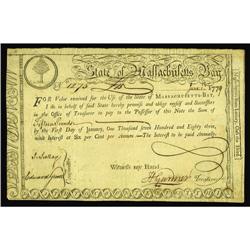 State of Massachusetts Bay
1275
1779
FOR Value received for the Use of the State of MASSACHUSETTS-BAY,
I do in behalf of said State hereby promise and oblige myself and Successors
in the Office of Treasurer to pay to the Possessor of this Note the Sum of
by the First Day of January, One Thousand Seven Hundred and Eighty three,
with Interest at Six per Cent per Annum:—The Interest to be paid annually.
Witness my Hand
HGardner Treasurer